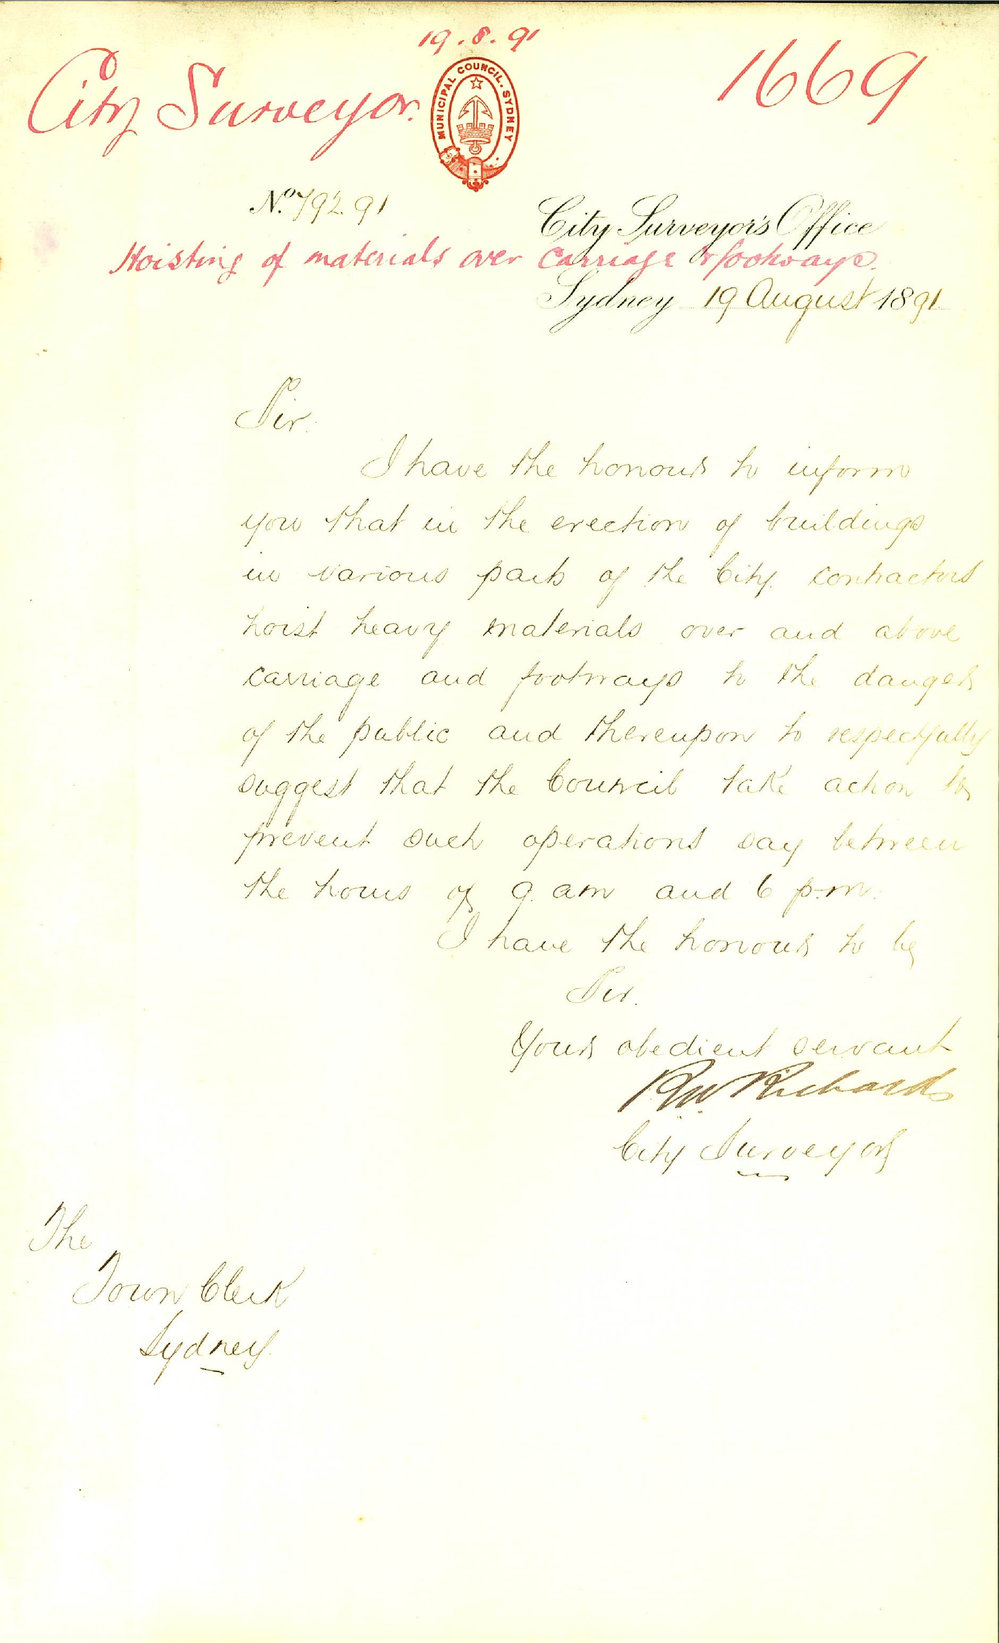 19.8.91
City Surveyor.
1669
MUNICIPAL COUNCIL. SYDNEY
No. 792.91
City Surveyor's Office
Hoisting of materials over carriage & footways.
Sydney 19 August 1891
Sir.
I have the honour to inform
you that in the erection of buildings
in various parts of the City contractors
hoist heavy materials over and above
carriage and footways to the danger
of the public and thereupon to respectfully
suggest that the Council take action to
prevent such operations say between
the hours of 9. am and 6 p.m.
I have the honour to be
Sir.
Your obedient servant
R.W. Richards
City Surveyor
The
Town Clerk
Sydney.